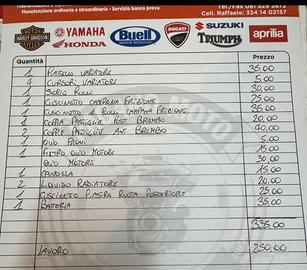 Manutenzione ordinaria e straordinaria - Servizio banco prova
Cell. Raffaele: 334 14 02157
HARLEY-DAVIDSON
YAMAHA
HONDA
Buell
DUCATI
SUZUKI
TRIUMPH
aprilia
Quantità Prezzo
1 VARIATORE 35,00
CURSORI VARIATORI 5,00
1 SERIE RULLI 30,00
1 CUSCINETTO CAMPANA FRIZIONE 25,00
1 CUSCINETTO A RULLI CAMPANA FRIZIONE
1 COPPIA PASTIGLIE POST BREMBO 20,00
2 COPPIE PASTIGLIE ANT BREMBO 40,00
1 5,00
1 FILTRO OLIO MOTORE 15,00
OLIO MOTORE 30,00
1 CANDELA 15,00
2 LIQUIDO RADIATORE 20,00
1 CUSCINETTO RUOTA POSTERIORE 25,00
1 BATTERIA 35,00
335,00
LAVORO 250,00